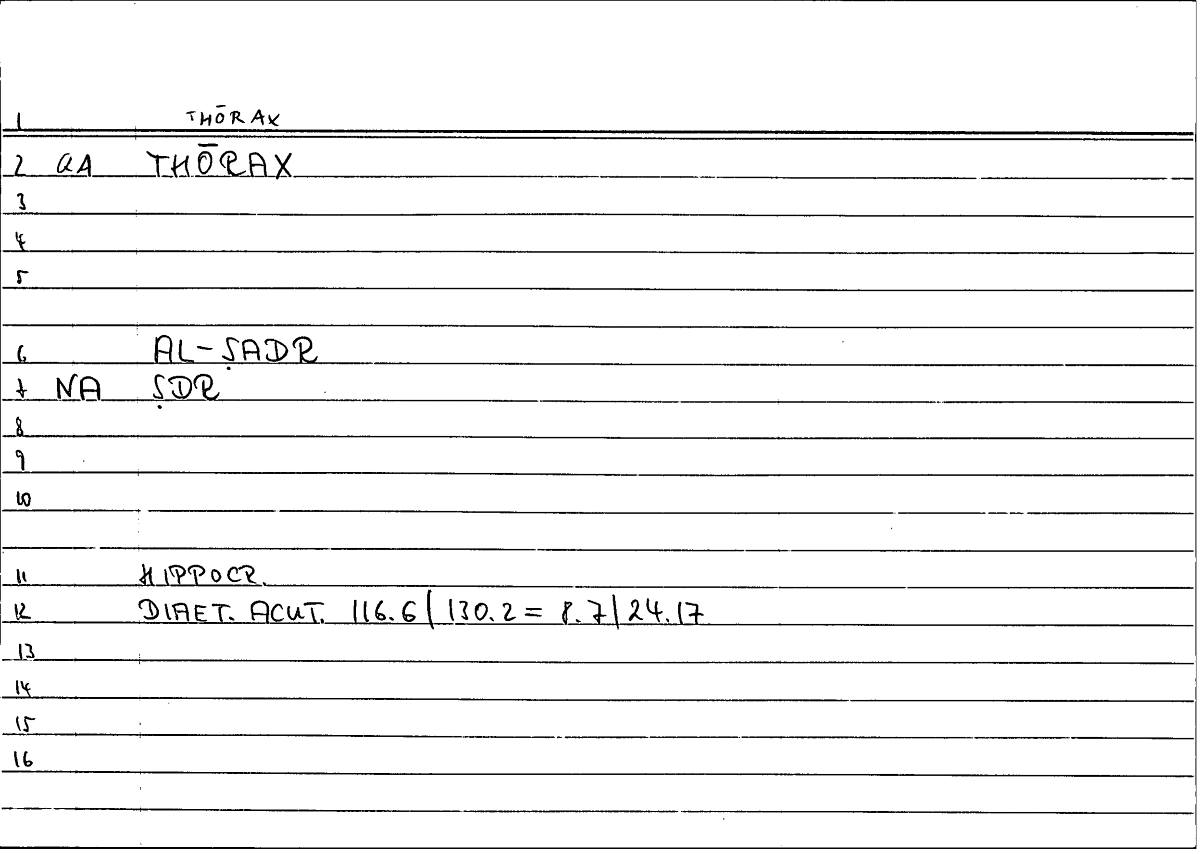 1 THŌRAX
2 QA THŌRAX
3
4
5
6 AL-ṢADR
7 NA ṢDR
8
9
10
11 HIPPOCR.
12 DIAET. ACUT. 116.6 | 130.2 = 8.7 | 24.17
13
14
15
16